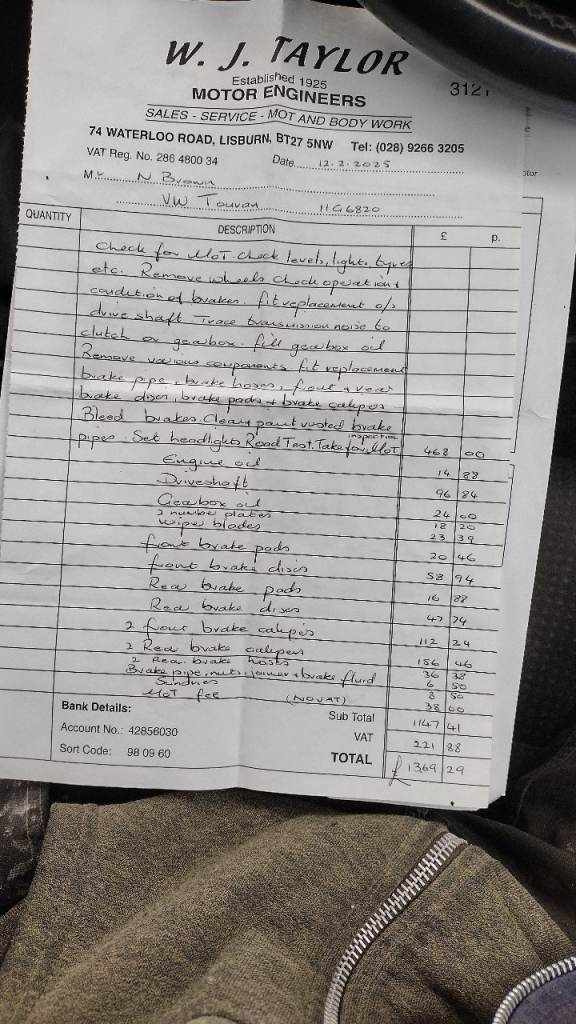 W. J. TAYLOR
Established 1925
MOTOR ENGINEERS
312
SALES - SERVICE - MOT AND BODY WORK
74 WATERLOO ROAD, LISBURN, BT27 5NW Tel: (028) 9266 3205
VAT Reg. No. 286 4800 34 Date 12.2.2025
M r N Brown
VW Touran 11G6820
QUANTITY DESCRIPTION £ p.
Check for MoT. check levels, lights, tyres
etc. Remove wheels check operation +
condition of brakes. fit replacement o/s
drive shaft Trace transmission noise to
clutch or gearbox. fill gearbox oil
Remove various components fit replacement
brake pipe, brake hoses, front + rear
brake discs, brake pads + brake calipers
Bleed brakes. Clean paint rusted brake
pipes. Set headlights Road Test. Take for MOT inspection 468 00
Engine oil 14 88
Driveshaft 96 84
Gearbox oil 24 00
2 number plates 18 20
wipe blades 23 39
front brake pads 20 46
front brake discs 58 94
Rear brake pads 16 88
Rear brake discs 47 74
2 front brake calipers 112 24
2 Rear brake calipers 156 46
2 Rear brake hoses 36 38
Brake pipe, nuts, + brake fluid 6 50
Sundries 8 50
MoT fee (NO VAT) 38 00
Bank Details: Sub Total 1147 41
Account No.: 42856030 VAT 221 88
Sort Code: 98 09 60 TOTAL £1369 29